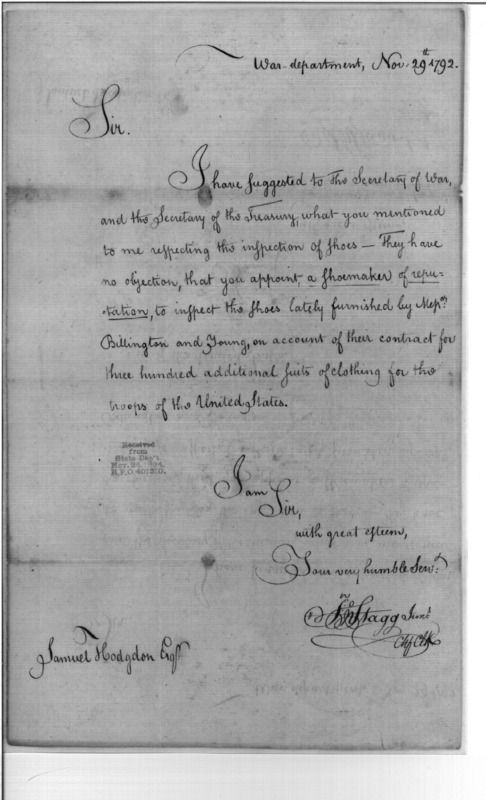 War-department, Nov. 29th 1792.
Sir.
I have suggested to the Secretary of War,
and the Secretary of the Treasury, what you mentioned
to me respecting the inspection of shoes — They have
no objection, that you appoint, a shoemaker of repu-
tation, to inspect the shoes lately furnished by Messrs
Billington and Young, on account of their contract for
three hundred additional suits of clothing for the
troops of the United States.
Received
from
State Dep't.
I am
Sir,
with great esteem,
Your very humble Servt.
Jno Stagg Junr
Chf Clk
Samuel Hodgdon Esqr